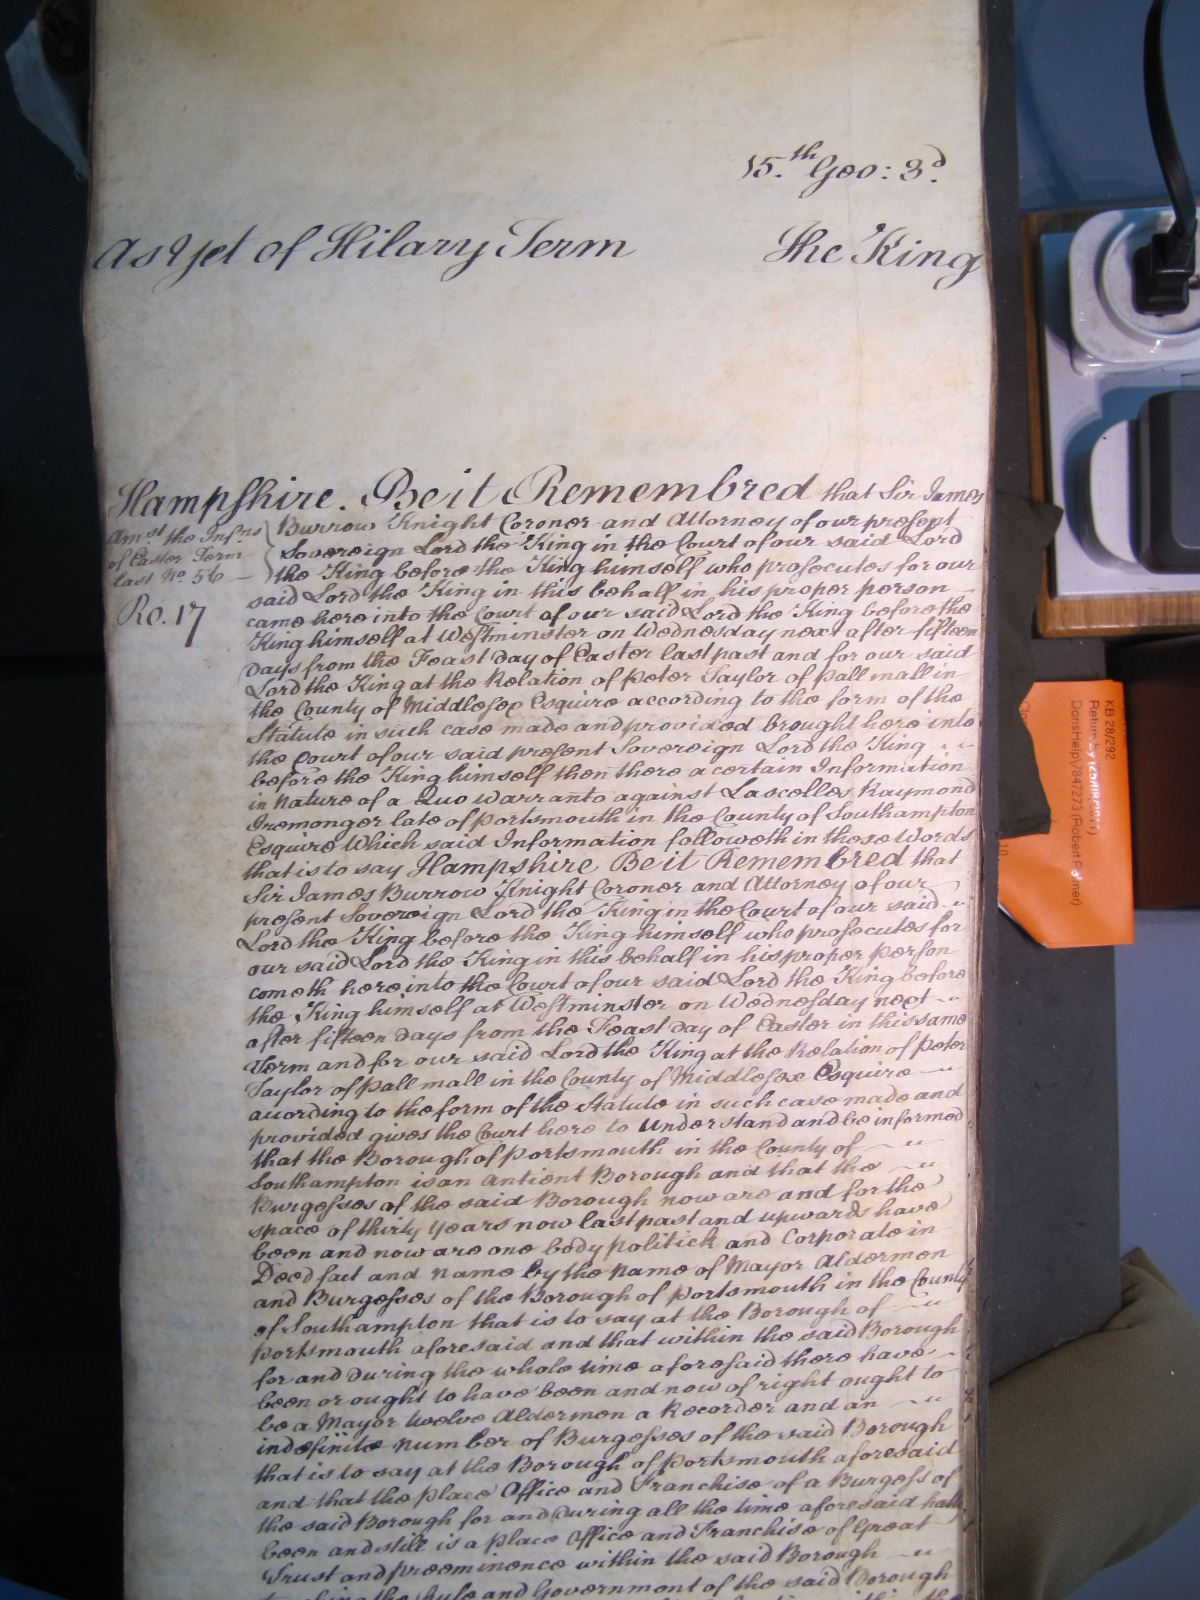 15.th Geo: 3.d
As Yet of Hilary Term The King
Hampshire. Be it Remembred that Sir James
Burrow Knight Coroner and Attorney of our present
Sovereign Lord the King in the Court of our said Lord
the King before the King himself who prosecutes for our
said Lord the King in this behalf in his proper person
came here into the Court of our said Lord the King before the
King himself at Westminster on Wednesday next after fifteen
Days from the Feast day of Easter last past and for our said
Lord the King at the Relation of Peter Taylor of Pall mall in
the County of Middlesex Esquire according to the form of the
Statute in such case made and provided brought here into
the Court of our said present Sovereign Lord the King
before the King himself then there a certain Information
in Nature of a Quo Warranto against Lascelles Raymond
Iremonger late of Portsmouth in the County of Southampton
Esquire Which said Information followeth in these Words
that is to say Hampshire Be it Remembred that
Sir James Burrow Knight Coroner and Attorney of our
present Sovereign Lord the King in the Court of our said
Lord the King before the King himself who prosecutes for
our said Lord the King in this behalf in his proper person
cometh here into the Court of our said Lord the King before
the King himself at Westminster on Wednesday next
after fifteen days from the Feast day of Easter in this same
Term and for our said Lord the King at the Relation of Peter
Taylor of Pall mall in the County of Middlesex Esquire
according to the form of the Statute in such case made and
provided gives the Court here to understand and be informed
that the Borough of Portsmouth in the County of
Southampton is an antient Borough and that the
Burgesses of the said Borough now are and for the
space of thirty years now last past and upwards have
been and now are one body politick and Corporate in
Deed fact and Name by the Name of Mayor Aldermen
and Burgesses of the Borough of Portsmouth in the County
of Southampton that is to say at the Borough of
Portsmouth aforesaid and that within the said Borough
for and during the whole time aforesaid there have
been or ought to have been and now of right ought to
be a Mayor twelve Aldermen a Recorder and an
indefinite number of Burgesses of the said Borough
that is to say at the Borough of Portsmouth aforesaid
and that the place Office and Franchise of a Burgess of
the said Borough for and during all the time aforesaid hath
been and still is a place Office and Franchise of Great
Trust and preeminence within the said Borough
the Rule and Government of the said Borough
Amst the Infns
of Easter Term
last No. 56
Ro. 17
KB 28/292
Return by (25/08/2011)
DorisHelp/847273 (Robert Palmer)